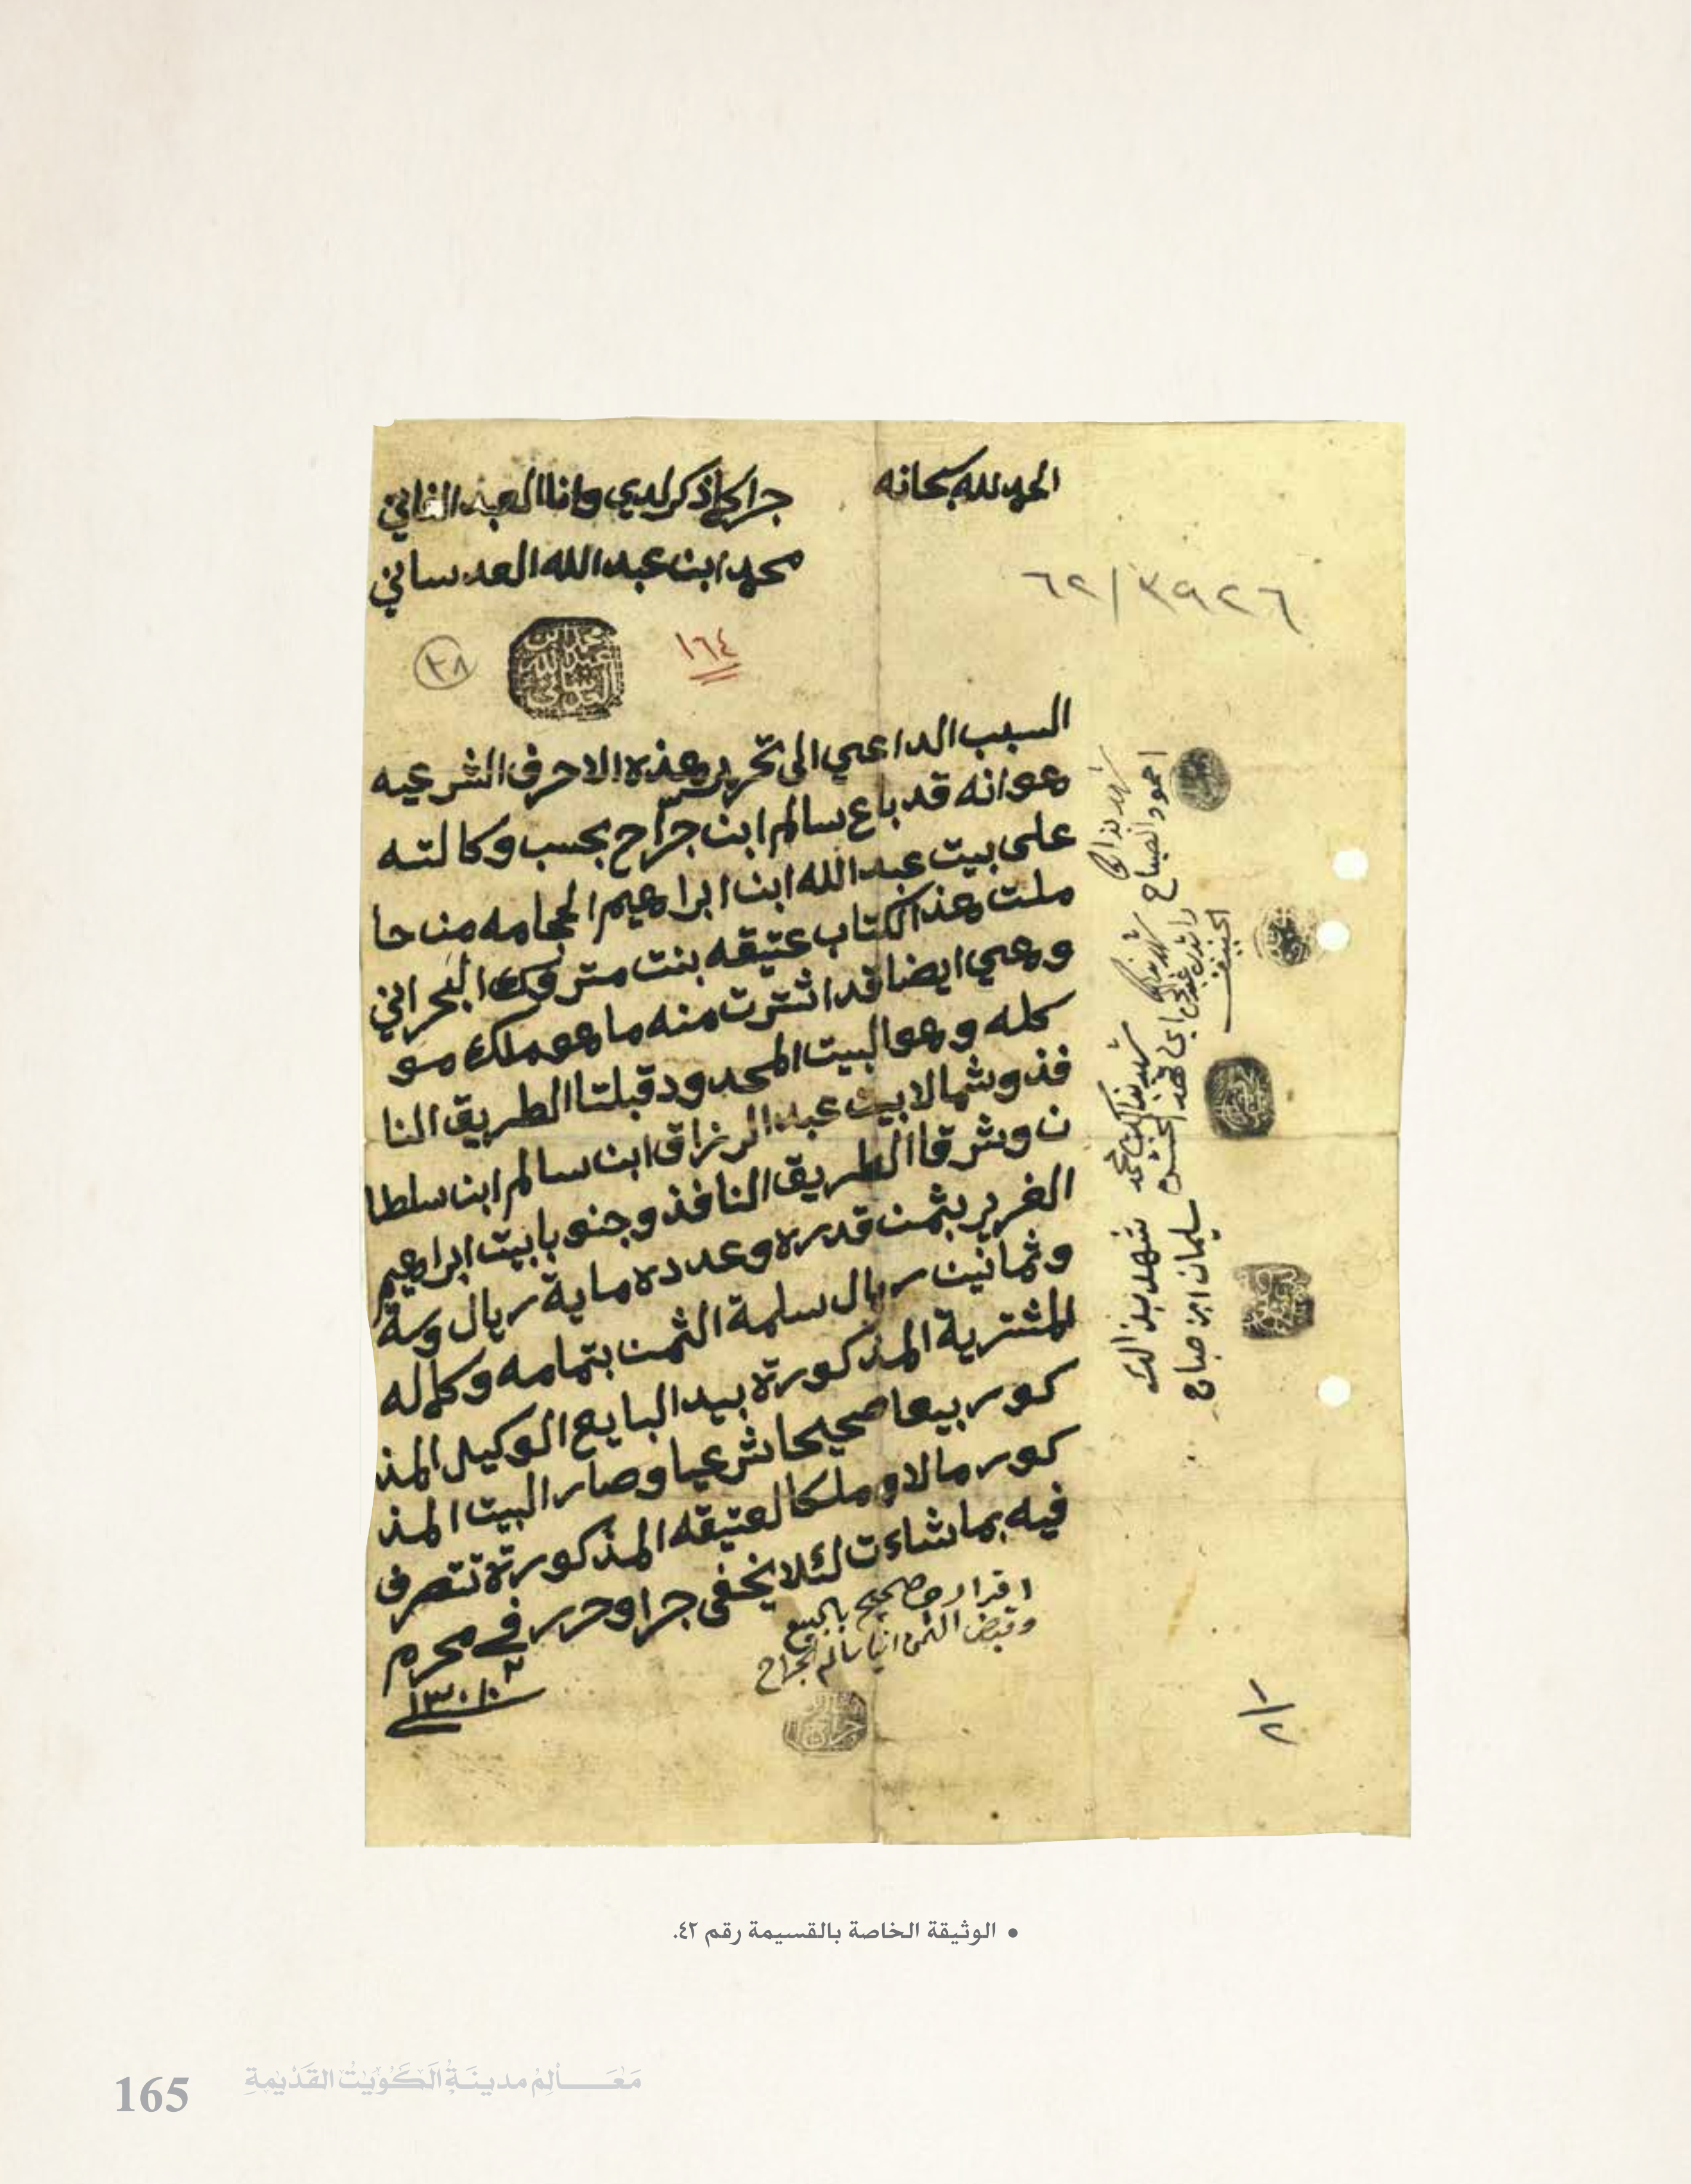 الحمد لله سبحانه
جرا كما ذكر لدي وانا العبد الفاني
محمد ابن عبد الله العدساني
٣٩٢٦/٦٢
١٦٤
٢٨
محمد ابن عبد الله العدساني
السبب الداعي الى تحرير هذه الاحرف الشرعيه
هو انه قد باع سالم ابن جراح بحسب وكالته
على بيت عبد الله ابن ابراهيم الحجامه من حا
ملت هذ الكتاب عتيقه بنت متروك البحراني
وهي ايضا قد اشترت منه ما هو ملك مو
كله وهو البيت المحدود قبلتا الطريق النا
فذ وشمالا بيت عبد الرزاق ابن سالم ابن سلطا
ن وشرقا الطريق النافذ وجنوبا بيت ابراهيم
الغرير بثمن قدره وعدده ماية ريال وستة
وثمانين ريال سلمة الثمن بتمامه وكماله
المشترية المذكورة بيد البايع الوكيل المذ
كور بيعا صحيحا شرعيا وصار البيت المذ
كور مالا وملكا لعتيقه المذكورة تتصرف
فيه بما شاءت لئلا يخفى جرا وحرر في محرم
اقراري صحيح بالبيع
وقبض الثمن انا سالم الجراح
شهد بذالك
حمود الصباح
شهد بذالك
شهد بذالك محمد
شهد بذالك
سليمان ابن صباح
• الوثيقة الخاصة بالقسيمة رقم ٤٢.
مَعَالِم مدينَةِ الكُوَيْت القَدْيمةِ
165